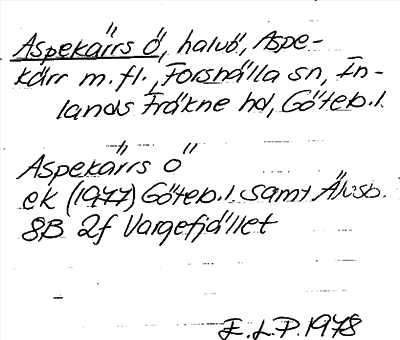 Aspekärrs Ö, halvö, Aspe-
kärr m.fl., Forshälla sn, In-
lands Fräkne hd, Göteb.l.
Aspekärrs Ö
ek (1977) Göteb.l. samt Älvsb.
8B 2f Vargefjället
E.L.P. 1978